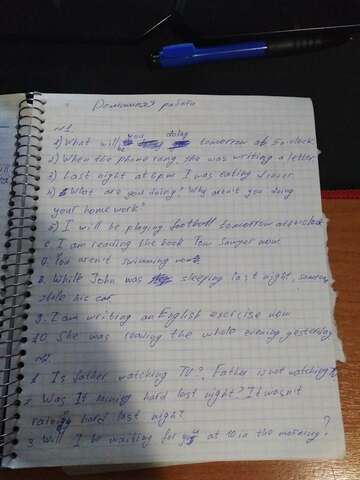 Домашняя работа
№1.
1) What will you be doing tomorrow at 5 o'clock
2) When the phone rang, she was writing a letter
3) Last night at 6pm I was eating dinner
4) What are you doing? Why aren't you doing
your homework?
5) I will be playing football tomorrow at
6. I am reading the book Tom Sawyer now
7. You aren't swimming now
8. While John was sleeping last night, someone
stole his car
9. I am writing an English exercise now
10. She was reading the whole evening yesterday
№2.
1. Is father watching TV? Father is not watching
2. Was It raining hard last night? It wasn't
raining hard last night?
3. Will I be waiting for you at 10 in the morning?